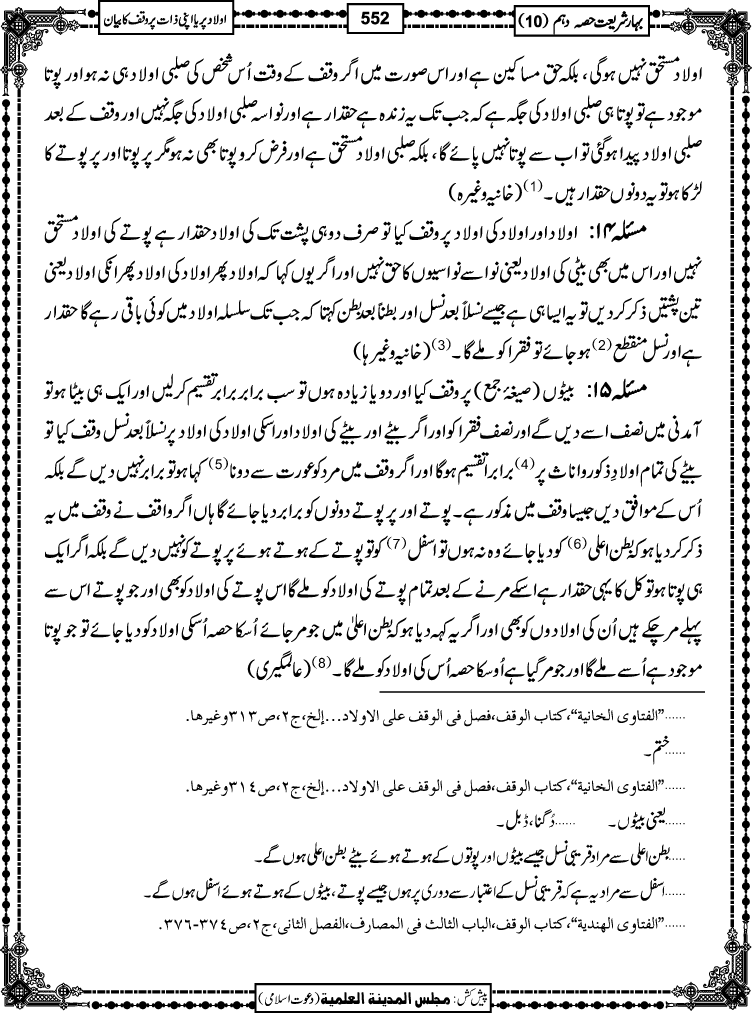 بہارِ شریعت حصہ دہم (10)
552
اولاد پر یا اپنی ذات پر وقف کا بیان
اولاد مستحق نہیں ہوگی، بلکہ حق مساکین ہے اور اس صورت میں اگر وقف کے وقت اُس شخص کی صلبی اولاد ہی نہ ہو اور پوتا
موجود ہے تو پوتا ہی صلبی اولاد کی جگہ ہے کہ جب تک یہ زندہ ہے حقدار ہے اور نواسہ صلبی اولاد کی جگہ نہیں اور وقف کے بعد
صلبی اولاد پیدا ہوگئی تو اب سے پوتا نہیں پائے گا، بلکہ صلبی اولاد مستحق ہے اور فرض کرو پوتا بھی نہ ہو مگر پرپوتا اور پرپوتے کا
لڑکا ہو تو یہ دونوں حقدار ہیں۔(1) (خانیہ وغیرہ)
مسئلہ ۱۴: اولاد اور اولاد کی اولاد پر وقف کیا تو صرف دو ہی پشت تک کی اولاد حقدار ہے پوتے کی اولاد مستحق
نہیں اور اس میں بھی بیٹی کی اولاد یعنی نواسے نواسیوں کا حق نہیں اور اگر یوں کہا کہ اولاد پھر اولاد کی اولاد پھر انکی اولاد یعنی
تین پشتیں ذکر کردیں تو یہ ایسا ہی ہے جیسے نسلاً بعد نسل اور بطناً بعد بطن کہتا کہ جب تک سلسلہ اولاد میں کوئی باقی رہے گا حقدار
ہے اور نسل منقطع(2) ہو جائے تو فقرا کو ملے گا۔(3) (خانیہ وغیرہا)
مسئلہ ۱۵: بیٹوں (صیغۂ جمع) پر وقف کیا اور دو یا زیادہ ہوں تو سب برابر برابر تقسیم کرلیں اور ایک ہی بیٹا ہو تو
آمدنی میں نصف اسے دیں گے اور نصف فقرا کو اور اگر بیٹے اور بیٹے کی اولاد اور اسکی اولاد کی اولاد پر نسلاً بعد نسل وقف کیا تو
بیٹے کی تمام اولادِ ذکور و اناث پر(4) برابر تقسیم ہوگا اور اگر وقف میں مرد کو عورت سے دونا(5) کہا ہو تو برابر نہیں دیں گے بلکہ
اُس کے موافق دیں جیسا وقف میں مذکور ہے۔ پوتے اور پرپوتے دونوں کو برابر دیا جائے گا ہاں اگر واقف نے وقف میں یہ
ذکر کردیا ہو کہ بطن اعلی(6) کو دیا جائے وہ نہ ہوں تو اسفل(7) کو تو پوتے کے ہوتے ہوئے پرپوتے کو نہیں دیں گے بلکہ اگر ایک
ہی پوتا ہو تو کل کا یہی حقدار ہے اسکے مرنے کے بعد تمام پوتے کی اولاد کو ملے گا اس پوتے کی اولاد کو بھی اور جو پوتے اس سے
پہلے مر چکے ہیں اُن کی اولادوں کو بھی اور اگر یہ کہہ دیا ہو کہ بطن اعلیٰ میں جو مر جائے اُسکا حصہ اُسکی اولاد کو دیا جائے تو جو پوتا
موجود ہے اُسے ملے گا اور جو مر گیا ہے اُوسکا حصہ اُس کی اولاد کو ملے گا۔(8) (عالمگیری)
......”الفتاوى الخانية“،كتاب الوقف،فصل فى الوقف على الاولاد...إلخ،ج٢،ص٣١٣وغيرها.
......ختم۔
......”الفتاوى الخانية“،كتاب الوقف،فصل فى الوقف على الاولاد...إلخ،ج٢،ص٣١٤وغيرها.
......یعنی بیٹوں۔ ......دُگنا، ڈبل۔
......بطن اعلی سے مراد قریبی نسل جیسے بیٹوں اور پوتوں کے ہوتے ہوئے بیٹے بطن اعلی ہوں گے۔
......اسفل سے مراد یہ ہے کہ قریبی نسل کے اعتبار سے دوری پر ہوں جیسے پوتے، بیٹوں کے ہوتے ہوئے اسفل ہوں گے۔
......”الفتاوى الهندية“،كتاب الوقف،الباب الثالث فى المصارف،الفصل الثانى،ج٢،ص٣٧٤-٣٧٦.
پیش کش: مجلس المدينة العلمية (دعوت اسلامی)